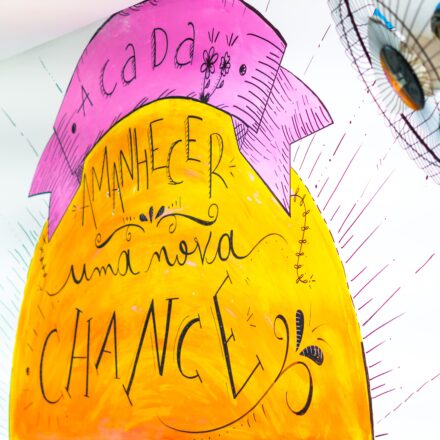 ACADA
AMANHECER
uma nova
CHANCE